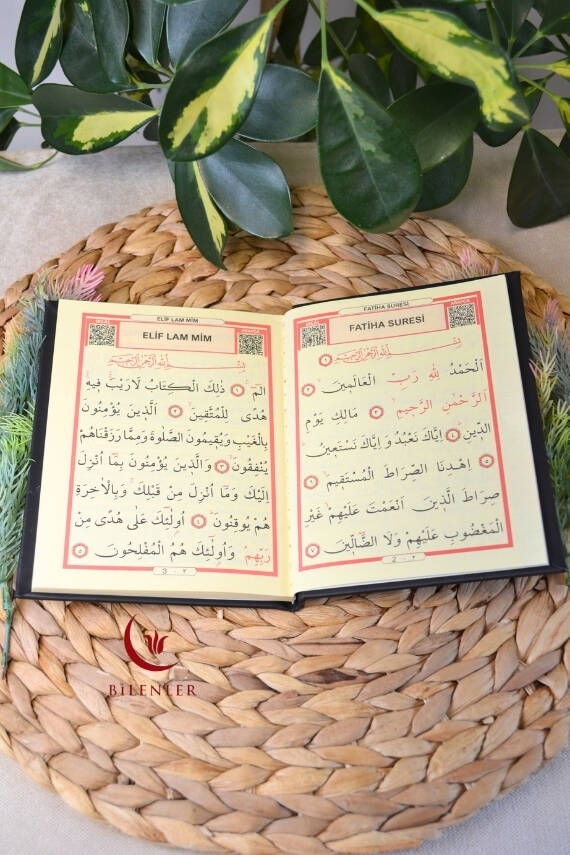 FATİHA SURESİ
FATİHA SURESİ
بِسْمِ اللّٰهِ الرَّحْمٰنِ الرَّحِيمِ ١
اَلْحَمْدُ لِلّٰهِ رَبِّ الْعَالَمِينَ ٢
اَلرَّحْمٰنِ الرَّحِيمِ ٣ مَالِكِ يَوْمِ
الدِّينِ ٤ اِيَّاكَ نَعْبُدُ وَ اِيَّاكَ نَسْتَعِينُ
٥ اِهْدِنَا الصِّرَاطَ الْمُسْتَقِيمَ ٦
صِرَاطَ الَّذِينَ اَنْعَمْتَ عَلَيْهِمْ غَيْرِ
الْمَغْضُوبِ عَلَيْهِمْ وَلَا الضَّٓالِّينَ ٧
2 - ٢
ELİF LAM MİM
ELİF LAM MİM
بِسْمِ اللّٰهِ الرَّحْمٰنِ الرَّحِيمِ
الٓمٓ ١ ذٰلِكَ الْكِتَابُ لَارَيْبَ فِيهِ
هُدًى لِلْمُتَّقِينَ ٢ اَلَّذِينَ يُؤْمِنُونَ
بِالْغَيْبِ وَيُقِيمُونَ الصَّلٰوةَ وَمِمَّا رَزَقْنَاهُمْ
يُنْفِقُونَ ٣ وَالَّذِينَ يُؤْمِنُونَ بِمَٓا اُنْزِلَ
اِلَيْكَ وَمَٓا اُنْزِلَ مِنْ قَبْلِكَ وَبِالْاٰخِرَةِ
هُمْ يُوقِنُونَ ٤ اُولٰٓئِكَ عَلٰى هُدًى مِنْ
رَبِّهِمْ وَاُولٰٓئِكَ هُمُ الْمُفْلِحُونَ ٥
3 - ٣
BİLENLER